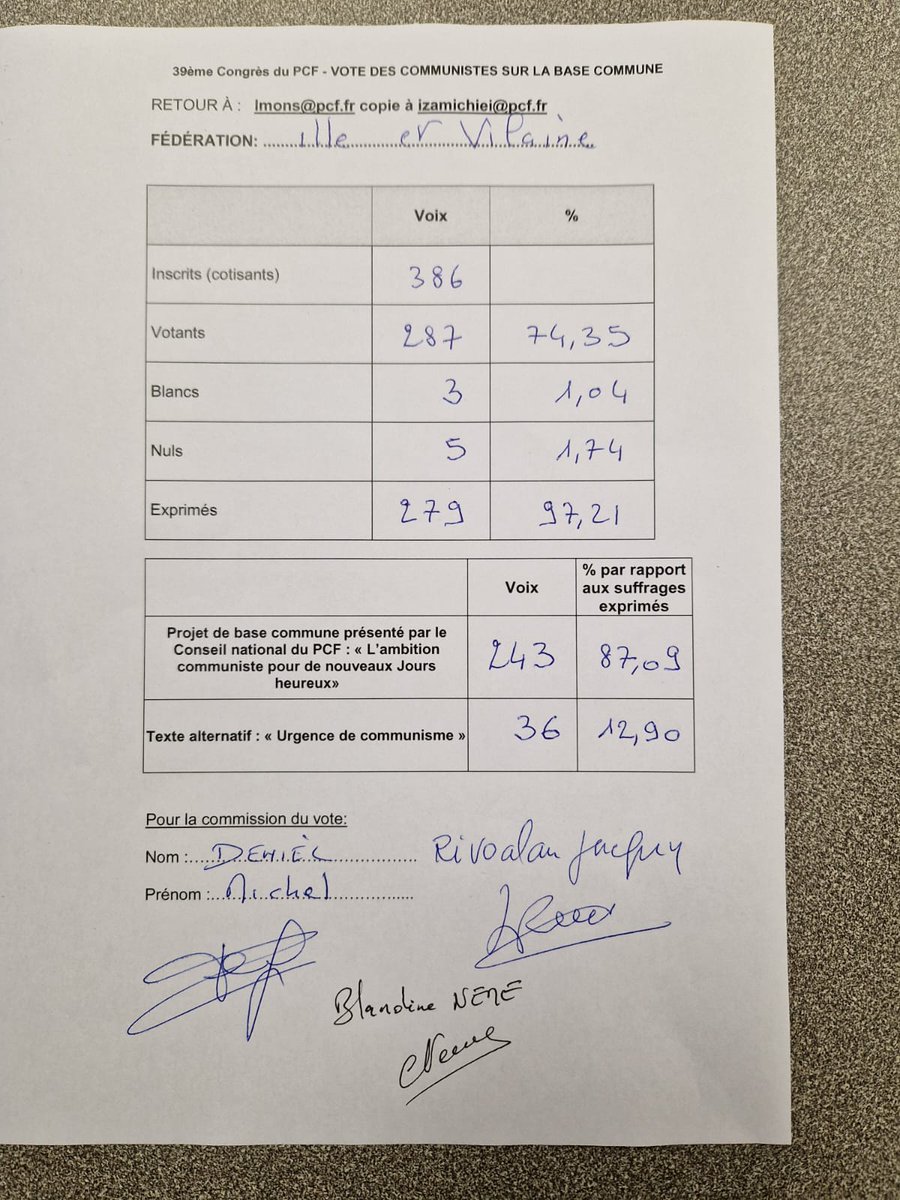 39ème Congrès du PCF - VOTE DES COMMUNISTES SUR LA BASE COMMUNE
RETOUR À : lmons@pcf.fr copie à izamichiei@pcf.fr
FÉDÉRATION: ille et Vilaine
Voix %
Inscrits (cotisants) 386
Votants 287 74,35
Blancs 3 1,04
Nuls 5 1,74
Exprimés 279 97,21
Voix % par rapport aux suffrages exprimés
Projet de base commune présenté par le
Conseil national du PCF : « L'ambition
communiste pour de nouveaux Jours
heureux» 243 87,09
Texte alternatif : « Urgence de communisme » 36 12,90
Pour la commission du vote:
Nom : Rivoalan Jacquy
Prénom : Michel
Blandine